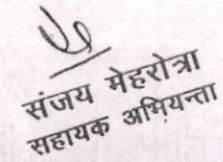 संजय मेहरोत्रा
सहायक अभियन्ता